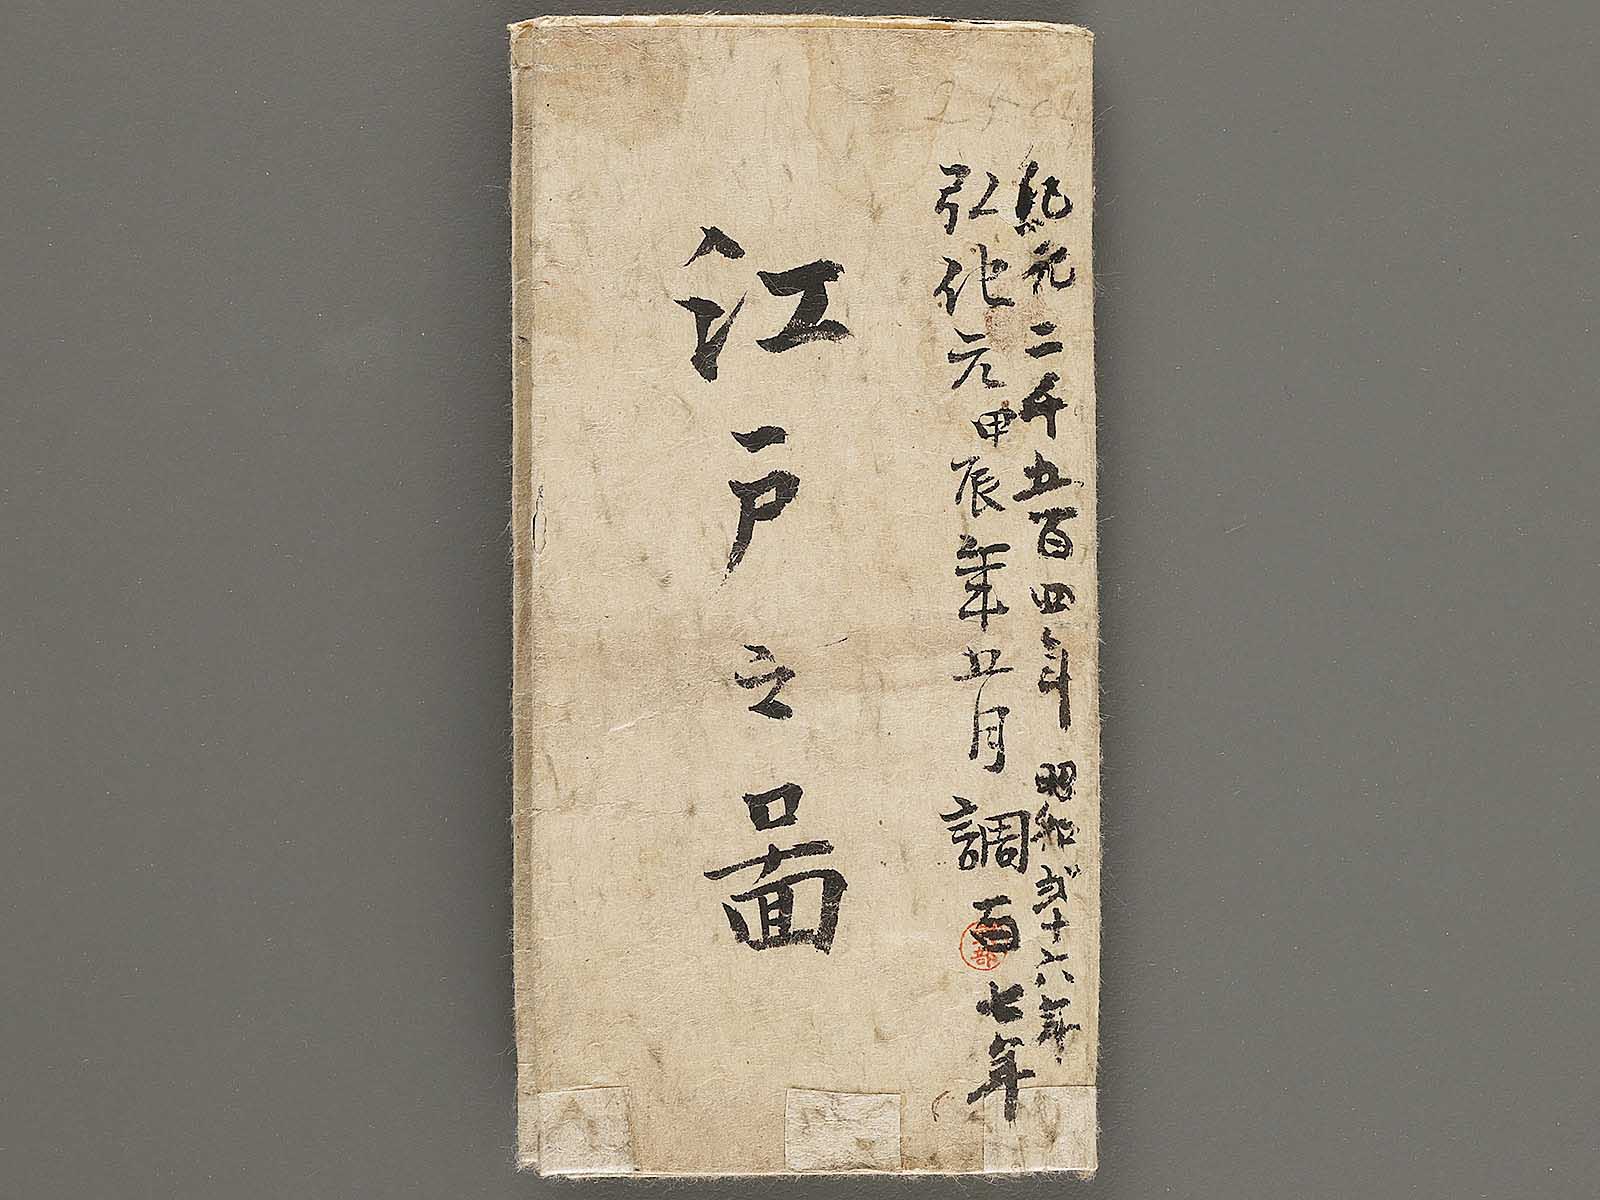 紀元二千五百四年 昭和弐十六年
弘化元甲辰年五月 調 百七年
江戸之啚